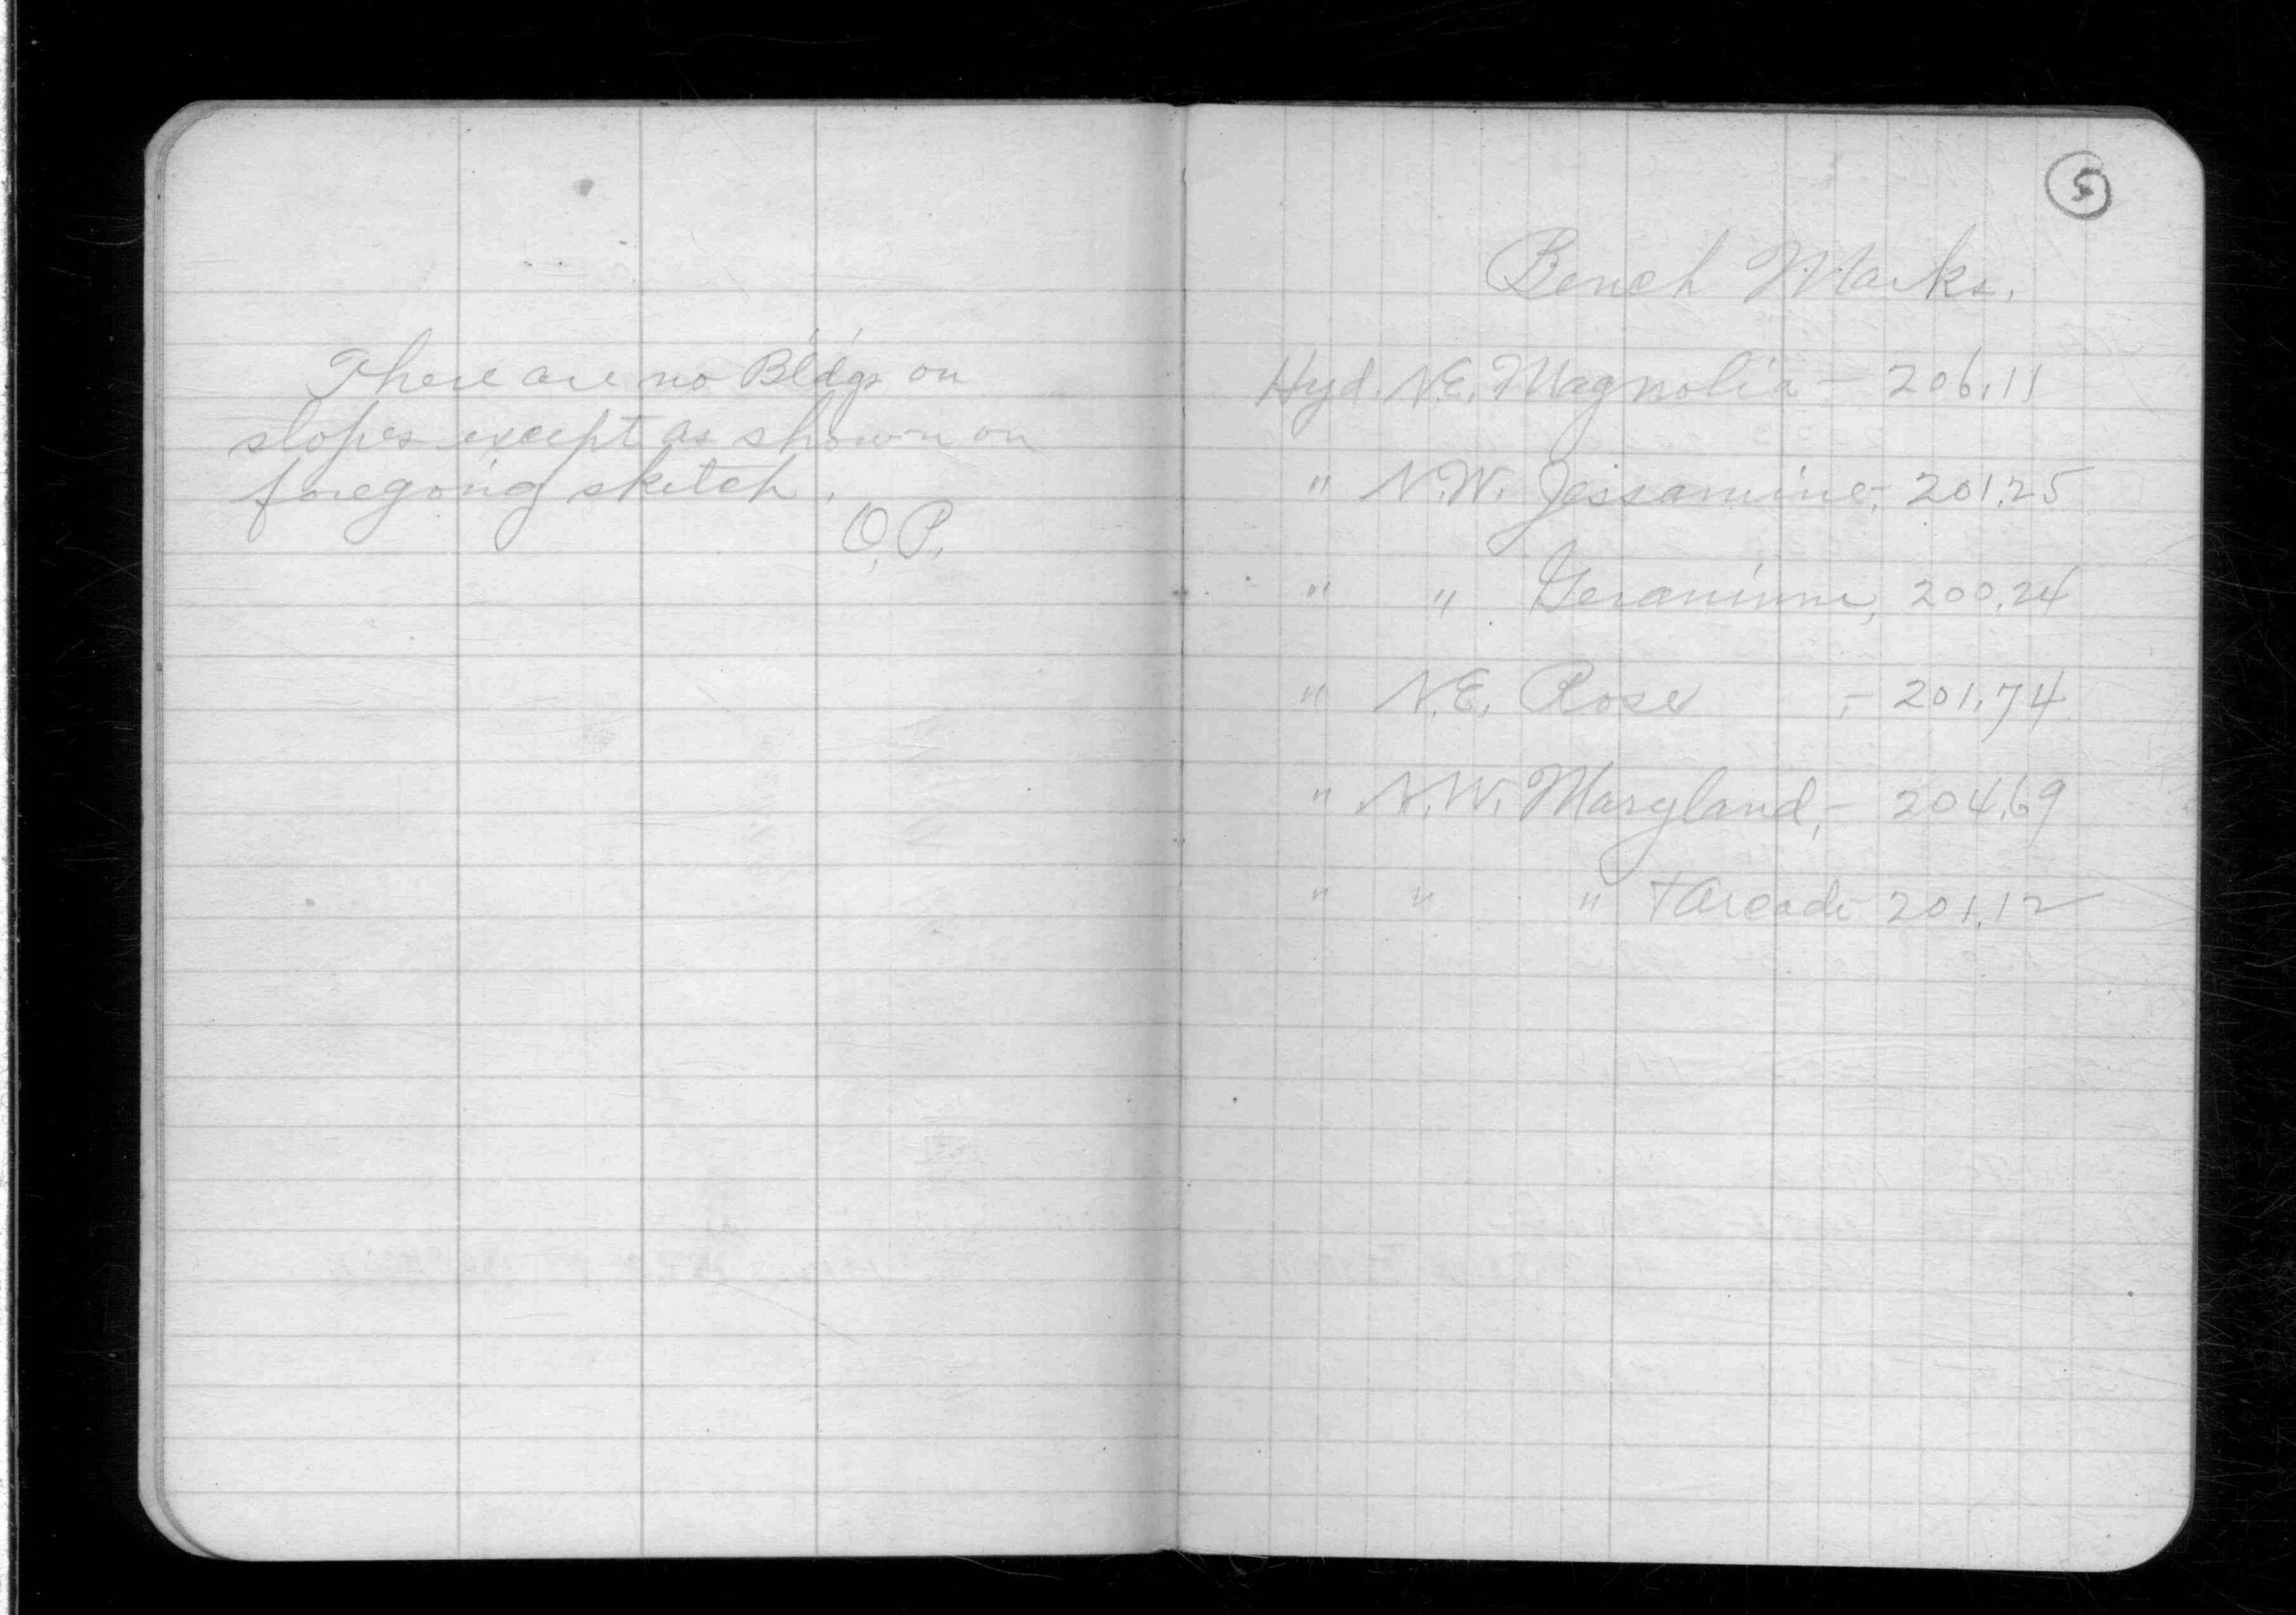 There are no Bldgs on
slopes except as shown on
foregoing sketch.
O.P.
5
Bench Marks.
Hyd. N.E. Magnolia - 206.11
" N.W. Jessamine, - 201.25
" " Geranium, 200.24
" N.E. Rose , - 201.74
" N.W. Maryland, - 204.69
" " " + Arcade - 201.12